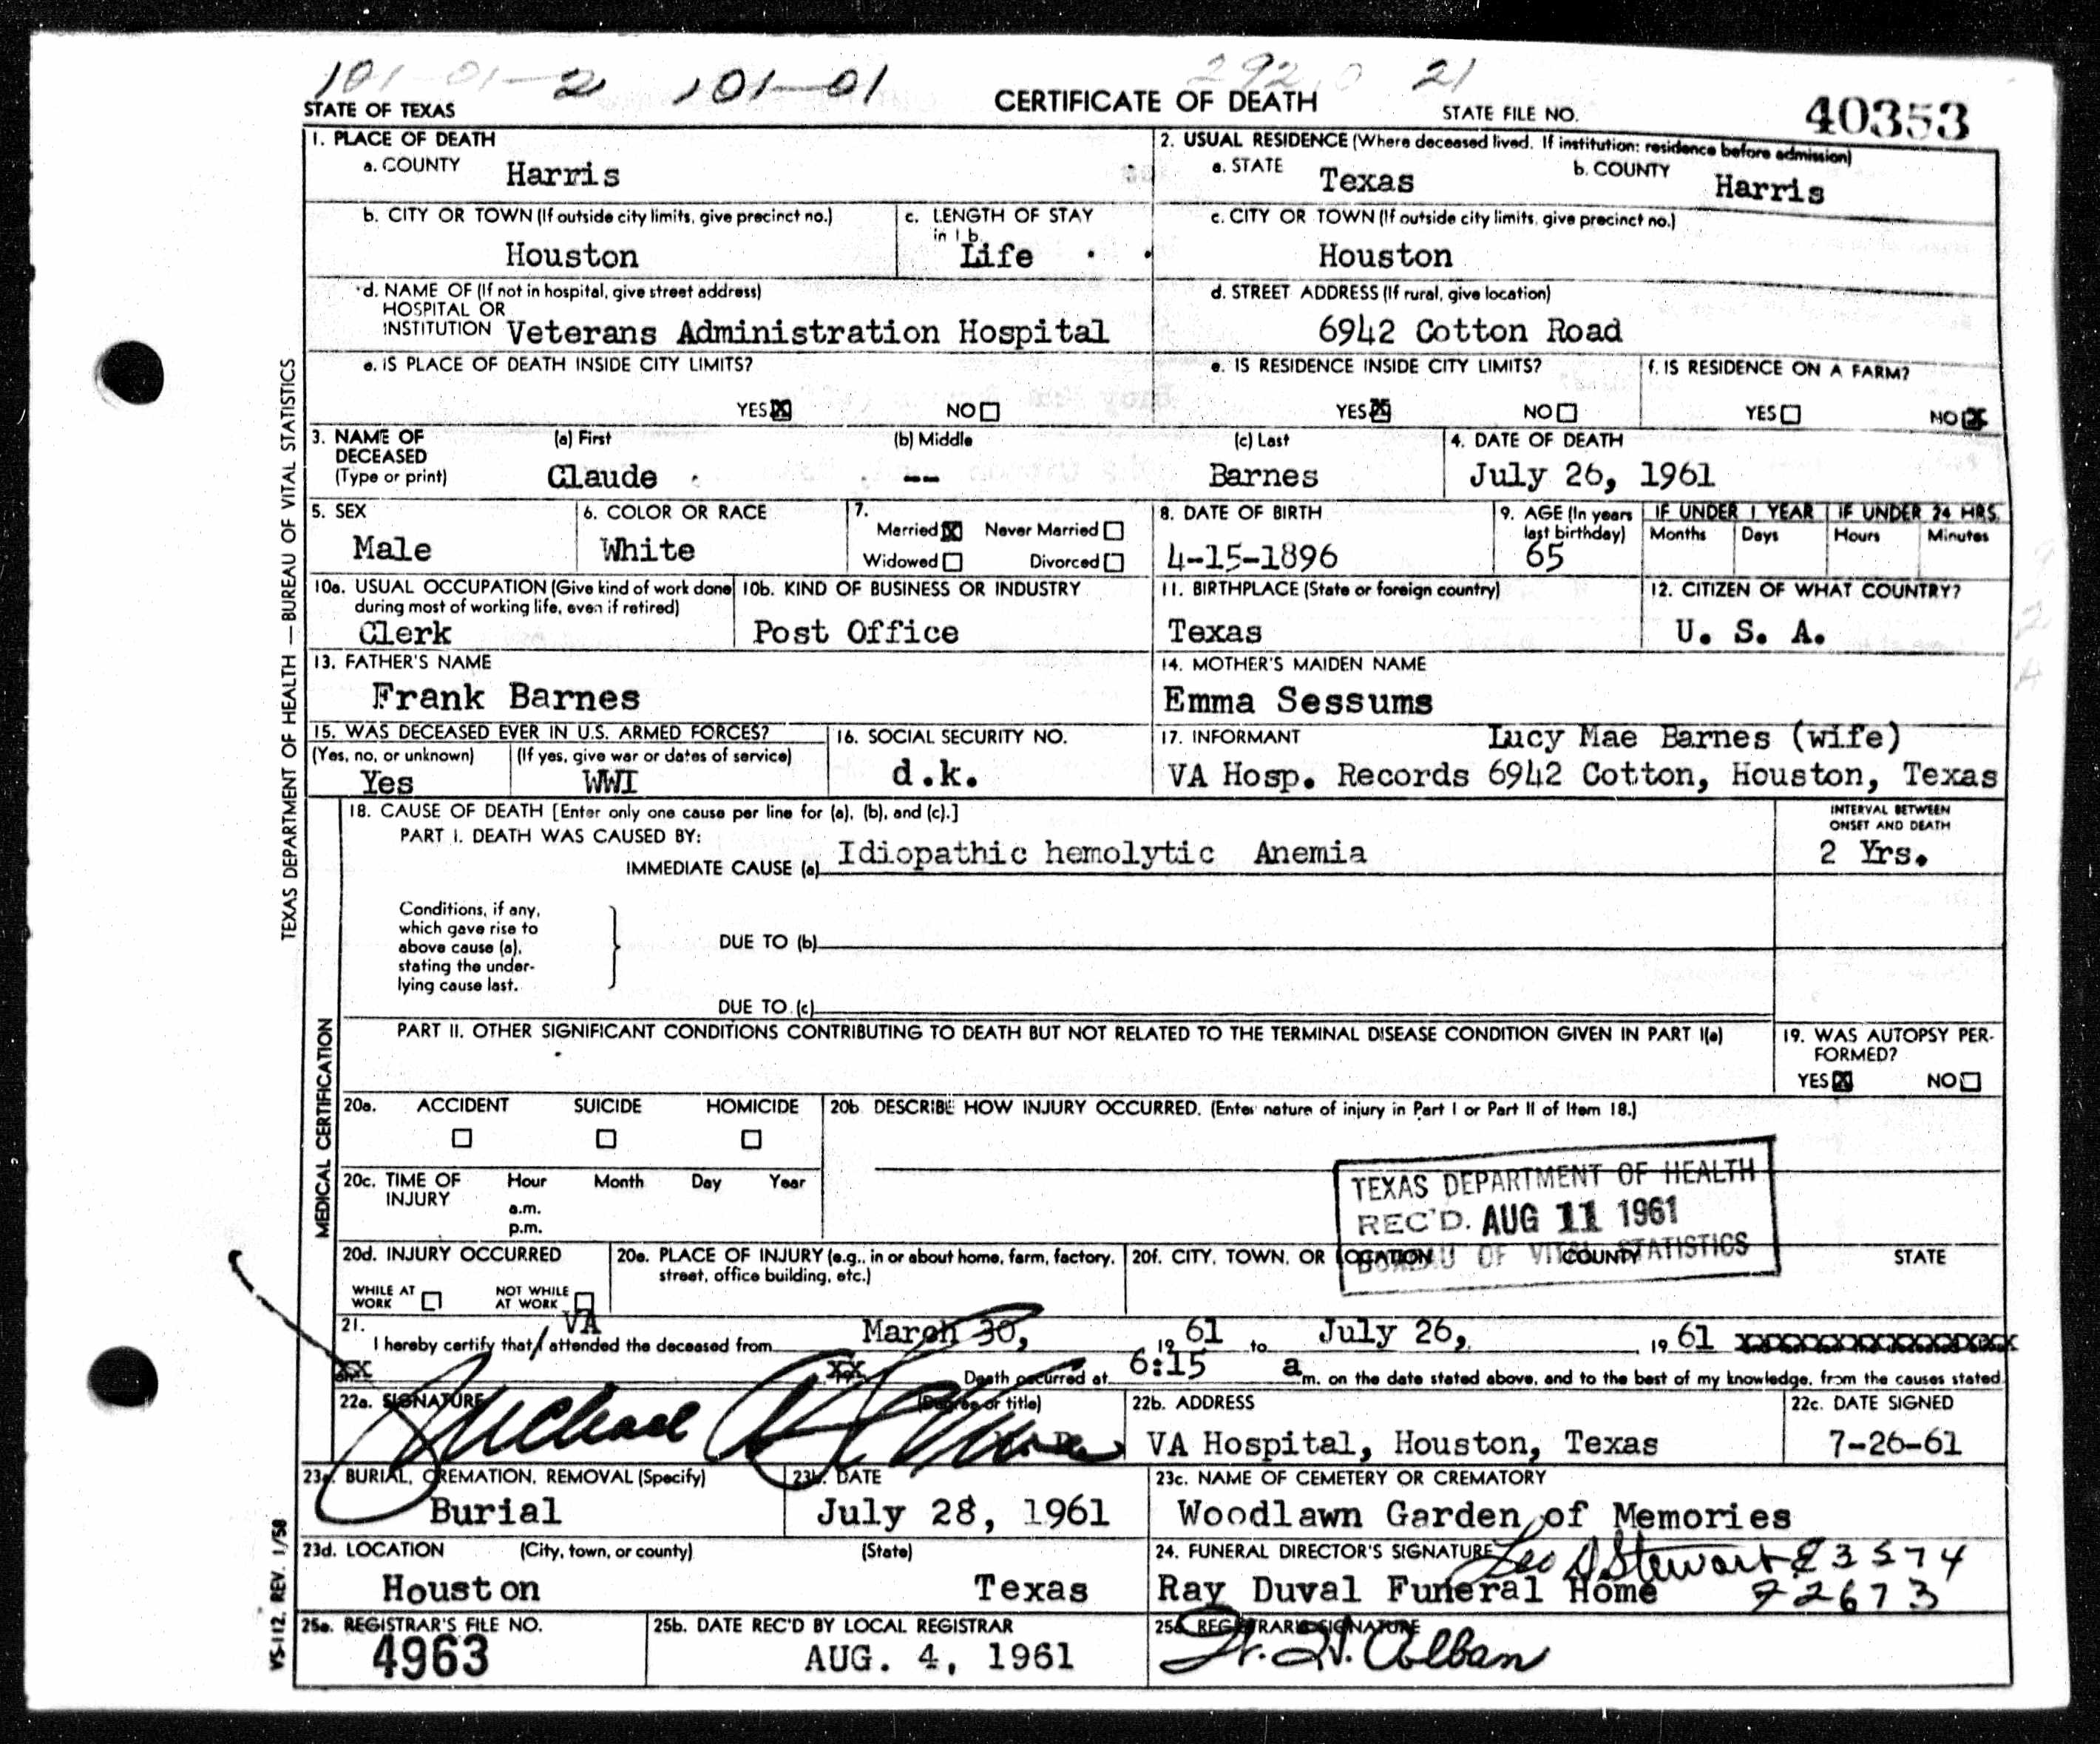 101-01-2 101-01 292.0 21
STATE OF TEXAS CERTIFICATE OF DEATH STATE FILE NO. 40353
1. PLACE OF DEATH
a. COUNTY Harris
2. USUAL RESIDENCE (Where deceased lived. If institution: residence before admission)
a. STATE Texas b. COUNTY Harris
b. CITY OR TOWN (If outside city limits, give precinct no.) Houston
c. LENGTH OF STAY in 1 b. Life
c. CITY OR TOWN (If outside city limits, give precinct no.) Houston
d. NAME OF (If not in hospital, give street address)
HOSPITAL OR
INSTITUTION Veterans Administration Hospital
d. STREET ADDRESS (If rural, give location)
6942 Cotton Road
e. IS PLACE OF DEATH INSIDE CITY LIMITS?
YES X NO
e. IS RESIDENCE INSIDE CITY LIMITS?
YES X NO
f. IS RESIDENCE ON A FARM?
YES NO X
3. NAME OF DECEASED (Type or print)
(a) First (b) Middle (c) Last
Claude -- Barnes
4. DATE OF DEATH
July 26, 1961
5. SEX
Male
6. COLOR OR RACE
White
7.
Married X Never Married
Widowed Divorced
8. DATE OF BIRTH
4-15-1896
9. AGE (In years last birthday)
65
IF UNDER 1 YEAR IF UNDER 24 HRS.
Months Days Hours Minutes
10a. USUAL OCCUPATION (Give kind of work done during most of working life, even if retired)
Clerk
10b. KIND OF BUSINESS OR INDUSTRY
Post Office
11. BIRTHPLACE (State or foreign country)
Texas
12. CITIZEN OF WHAT COUNTRY?
U. S. A.
13. FATHER'S NAME
Frank Barnes
14. MOTHER'S MAIDEN NAME
Emma Sessums
15. WAS DECEASED EVER IN U.S. ARMED FORCES?
(Yes, no, or unknown) (If yes, give war or dates of service)
Yes WWI
16. SOCIAL SECURITY NO.
d.k.
17. INFORMANT Lucy Mae Barnes (wife)
VA Hosp. Records 6942 Cotton, Houston, Texas
18. CAUSE OF DEATH [Enter only one cause per line for (a), (b), and (c).]
PART I. DEATH WAS CAUSED BY:
IMMEDIATE CAUSE (a) Idiopathic hemolytic Anemia
INTERVAL BETWEEN
ONSET AND DEATH
2 Yrs.
Conditions, if any,
which gave rise to
above cause (a),
stating the under-
lying cause last.
DUE TO (b)
DUE TO (c)
PART II. OTHER SIGNIFICANT CONDITIONS CONTRIBUTING TO DEATH BUT NOT RELATED TO THE TERMINAL DISEASE CONDITION GIVEN IN PART I(a)
19. WAS AUTOPSY PER-
FORMED?
YES X NO
20a. ACCIDENT SUICIDE HOMICIDE
20b DESCRIBE HOW INJURY OCCURRED. (Enter nature of injury in Part I or Part II of Item 18.)
20c. TIME OF INJURY
Hour Month Day Year
a.m.
p.m.
TEXAS DEPARTMENT OF HEALTH
REC'D. AUG 11 1961
BUREAU OF VITAL STATISTICS
20d. INJURY OCCURRED
WHILE AT WORK NOT WHILE AT WORK
20e. PLACE OF INJURY (e.g., in or about home, farm, factory, street, office building, etc.)
20f. CITY, TOWN, OR LOCATION COUNTY STATE
21. I hereby certify that VA attended the deceased from March 30, 1961 to July 26, 1961
Death occurred at 6:15 a m. on the date stated above, and to the best of my knowledge, from the causes stated.
22a. SIGNATURE (Degree or title)
Michael
22b. ADDRESS
VA Hospital, Houston, Texas
22c. DATE SIGNED
7-26-61
23a. BURIAL, CREMATION, REMOVAL (Specify)
Burial
23b. DATE
July 28, 1961
23c. NAME OF CEMETERY OR CREMATORY
Woodlawn Garden of Memories
23d. LOCATION (City, town, or county) (State)
Houston Texas
24. FUNERAL DIRECTOR'S SIGNATURE Leo D Stewart 3574
Ray Duval Funeral Home 2673
25a. REGISTRAR'S FILE NO.
4963
25b. DATE REC'D BY LOCAL REGISTRAR
AUG. 4, 1961
25c. REGISTRAR'S SIGNATURE
Alban
TEXAS DEPARTMENT OF HEALTH — BUREAU OF VITAL STATISTICS
MEDICAL CERTIFICATION
VS-112. REV. 1/58